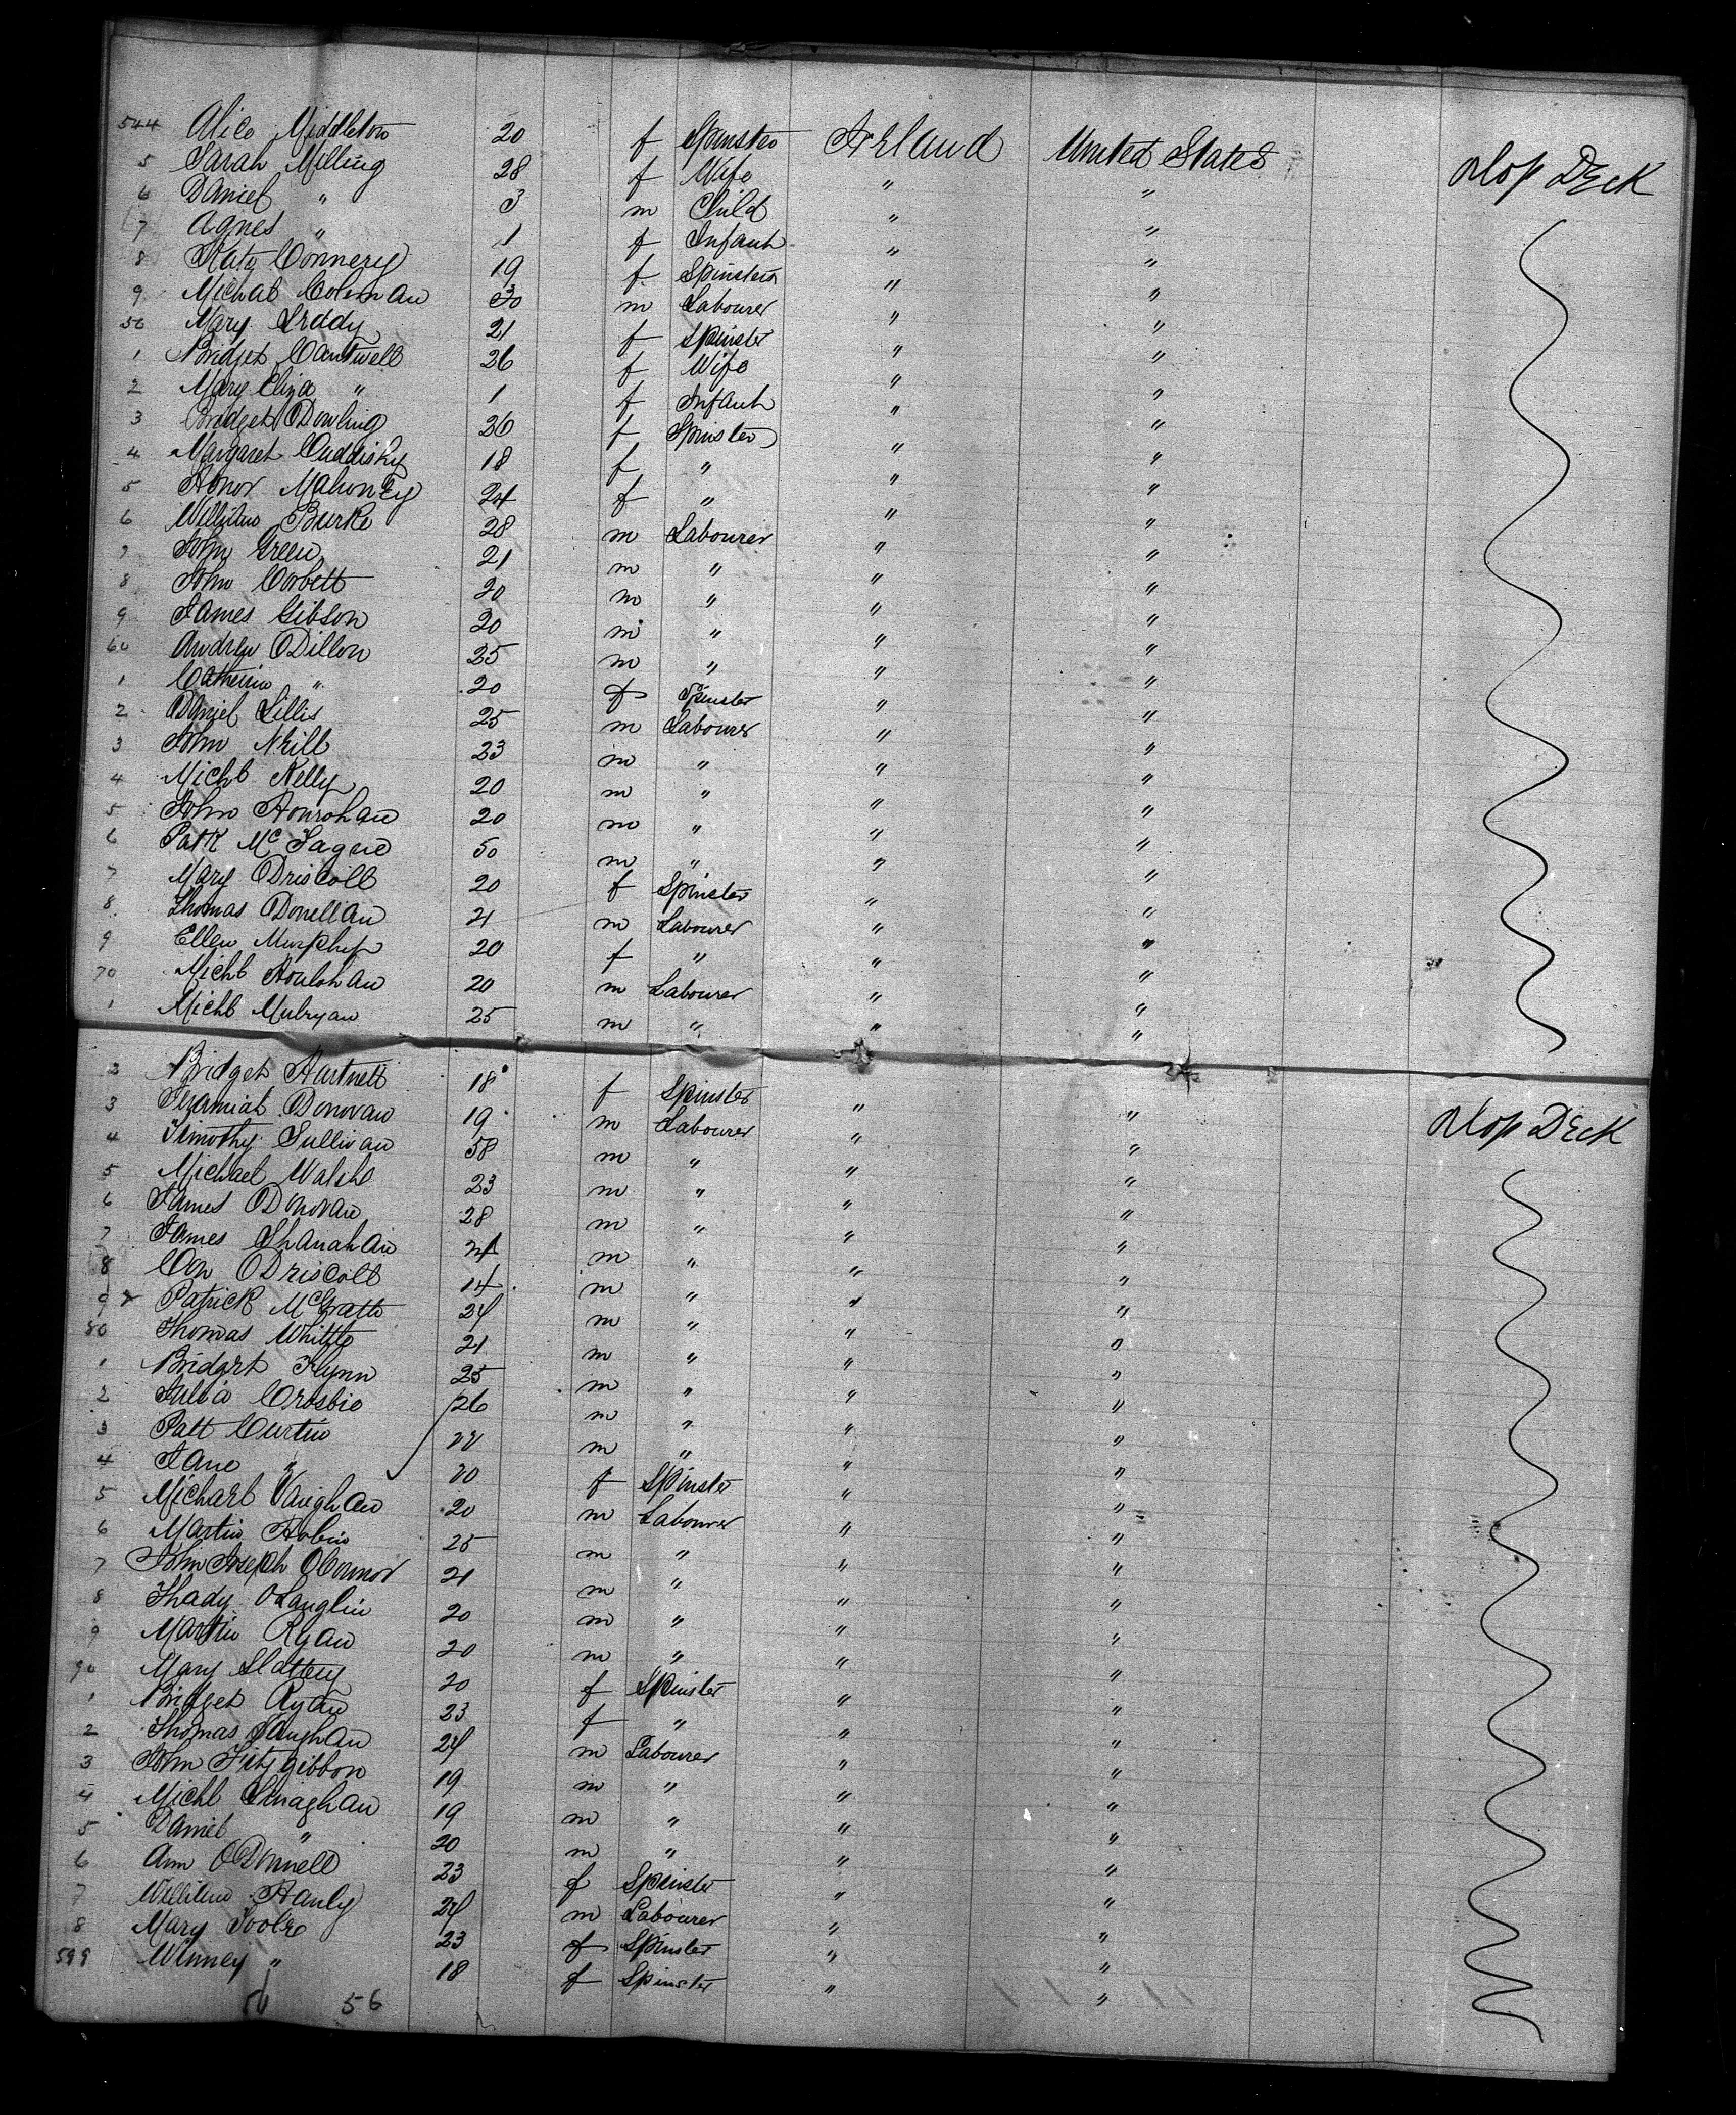 544 Alice Middleton 20 f Spinster Ireland United States Orlop Deck
5 Sarah Milling 28 f Wife " "
6 Daniel " 3 m Child " "
7 Agnes " 1 f Infant " "
8 Kate Connery 19 f Spinster " "
9 Michal Coleman 30 m Labourer " "
50 Mary Leddy 21 f Spinster " "
1 Bridget Cantwell 26 f Wife " "
2 Mary Eliza " 1 f Infant " "
3 Bridget Dowling 26 f Spinster " "
4 Margaret Cuddishy 18 f " " "
5 Honor Mahoney 24 f " " "
6 William Burke 28 m Labourer " "
7 John Green 21 m " " "
8 John Corbett 20 m " " "
9 James Gibson 20 m " " "
60 Andrew ODillon 25 m " " "
1 Catherine " 20 f Spinster " "
2 Daniel Lillis 25 m Labourer " "
3 John Neill 23 m " " "
4 Michl Kelly 20 m " " "
5 John Hourohan 20 m " " "
6 Patk McTague 50 m " " "
7 Mary Driscoll 20 f Spinster " "
8 Thomas Donellan 21 m Labourer " "
9 Ellen Murphy 20 f " " "
70 Michl Houlohan 20 m Labourer " "
1 Michl Mulryan 25 m " " "
2 Bridget Hartnett 18 f Spinster " "
3 Jeramiah Donovan 19 m Labourer " " Orlop Deck
4 Timothy Sullivan 58 m " " "
5 Michael Walsh 23 m " " "
6 James Donovan 28 m " " "
7 James Shanahan 21 m " " "
8 Con ODriscoll 14 m " " "
9 x Patrick McGrath 24 m " " "
80 Thomas Whittle 21 m " " "
1 Bridget Flynn 25 m " " "
2 Julia Crosbie 26 m " " "
3 Patt Curtin 22 m " " "
4 Jane " 20 f Spinster " "
5 Michael Vaughan 20 m Labourer " "
6 Martin Hobin 25 m " " "
7 John Joseph OConnor 21 m " " "
8 Thady OLauglin 20 m " " "
9 Martin Ryan 20 m " " "
90 Mary Slattery 20 f Spinster " "
1 Bridget Ryan 23 f " " "
2 Thomas Vaughan 24 m Labourer " "
3 John Fitzgibbon 19 m " " "
4 Michl Linaghan 19 m " " "
5 Daniel " 20 m " " "
6 Ann ODonnell 23 f Spinster " "
7 William Hanly 24 m Labourer " "
8 Mary Toole 23 f Spinster " "
599 Winney " 18 f Spinster " "
56